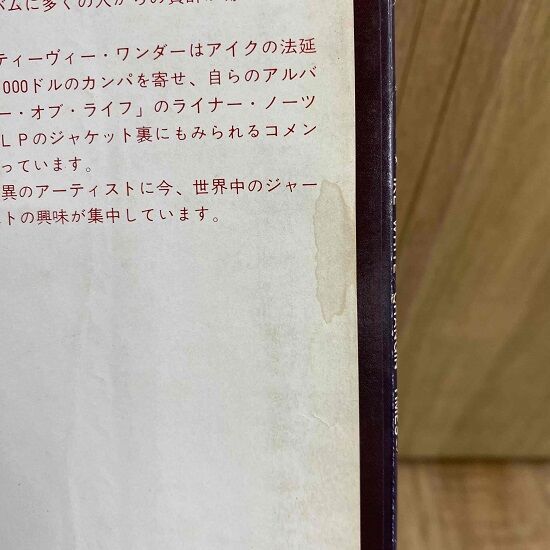 バムに多くの人からの賞
ティーヴィー・ワンダーはアイクの法廷
000ドルのカンパを寄せ、自らのアルバ
ー・オブ・ライフ」のライナー・ノーツ
ＬＰのジャケット裏にもみられるコメン
っています。
異のアーティストに今、世界中のジャー
ストの興味が集中しています。
IKE WHITE CHANGIN' TIMES